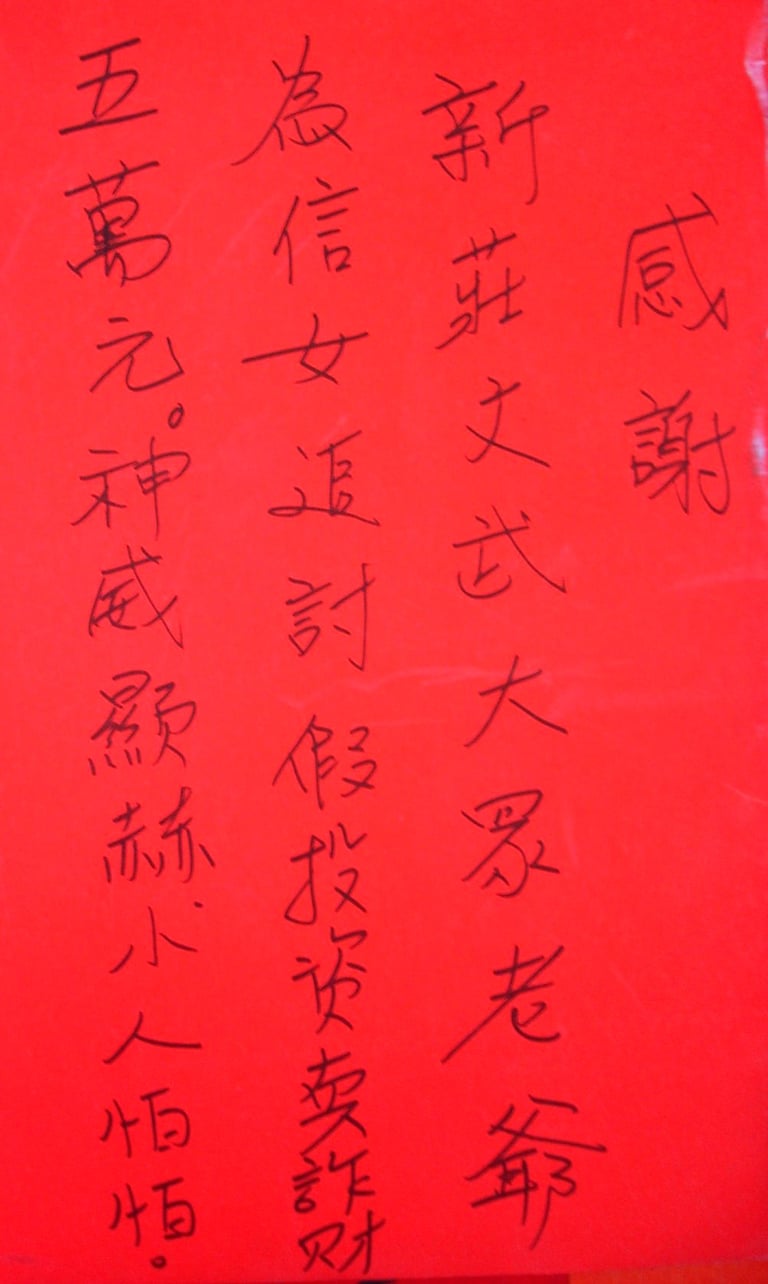 感謝
新莊文武大眾老爺
為信女追討假投資真詐財
五萬元。神威顯赫、小人怕怕。